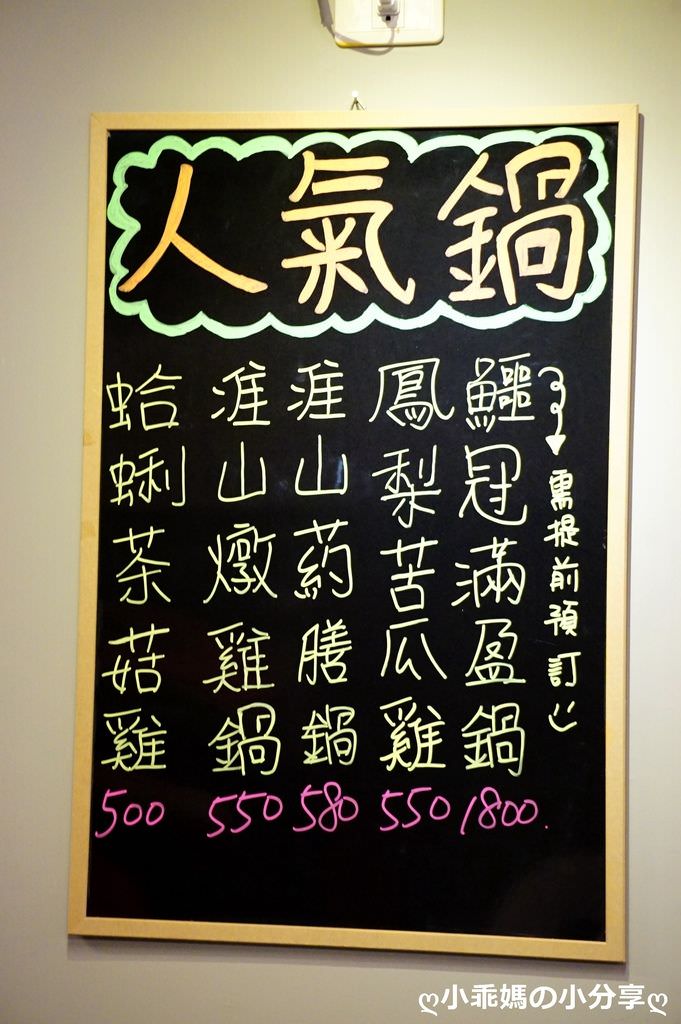 人氣鍋
鱷冠滿盈鍋
1800.
需提前預訂
鳳梨苦瓜雞
550
淮山葯膳鍋
580
淮山燉雞鍋
550
蛤蜊茶菇雞
500
ღ小乖媽の小分享ღ